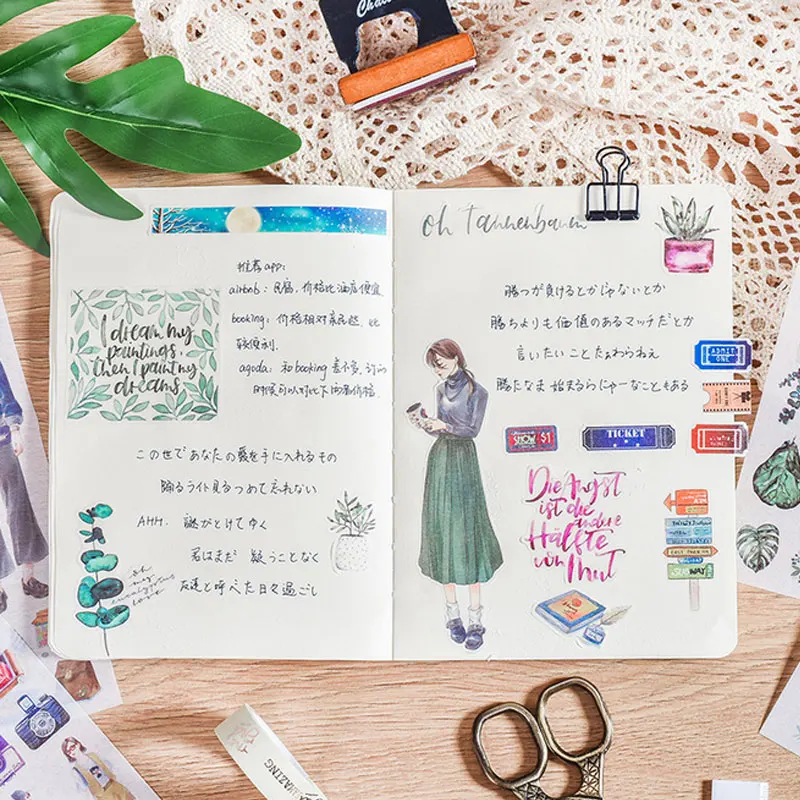 推荐app:
airbnb: 民宿, 价格比酒店便宜
booking: 价格相对亲民些, 比
较便利.
agoda: 和booking差不多, 订的
时候可以对比下两者价格.
I dream my
paintings,
then I paint my
dreams
この世であなたの愛を手に入れるもの
踊るライト見るつめて忘れない
AHH. 謎がとけてゆく
君はまだ 疑うことなく
友達と呼べた日々過ごし
oh my
eucalyptus
love
oh Tannenbaum
勝つが負けるとかじゃないとか
勝ちよりも価値のあるマッチだとか
言いたいこと たぁわらねえ
勝たなま 始まるらにゃーなこともある
ADMIT
ONE
SHOW $1
TICKET
Die Angst
ist die
andere
Hälfte
von Mut
SUBWAY
AMAZING